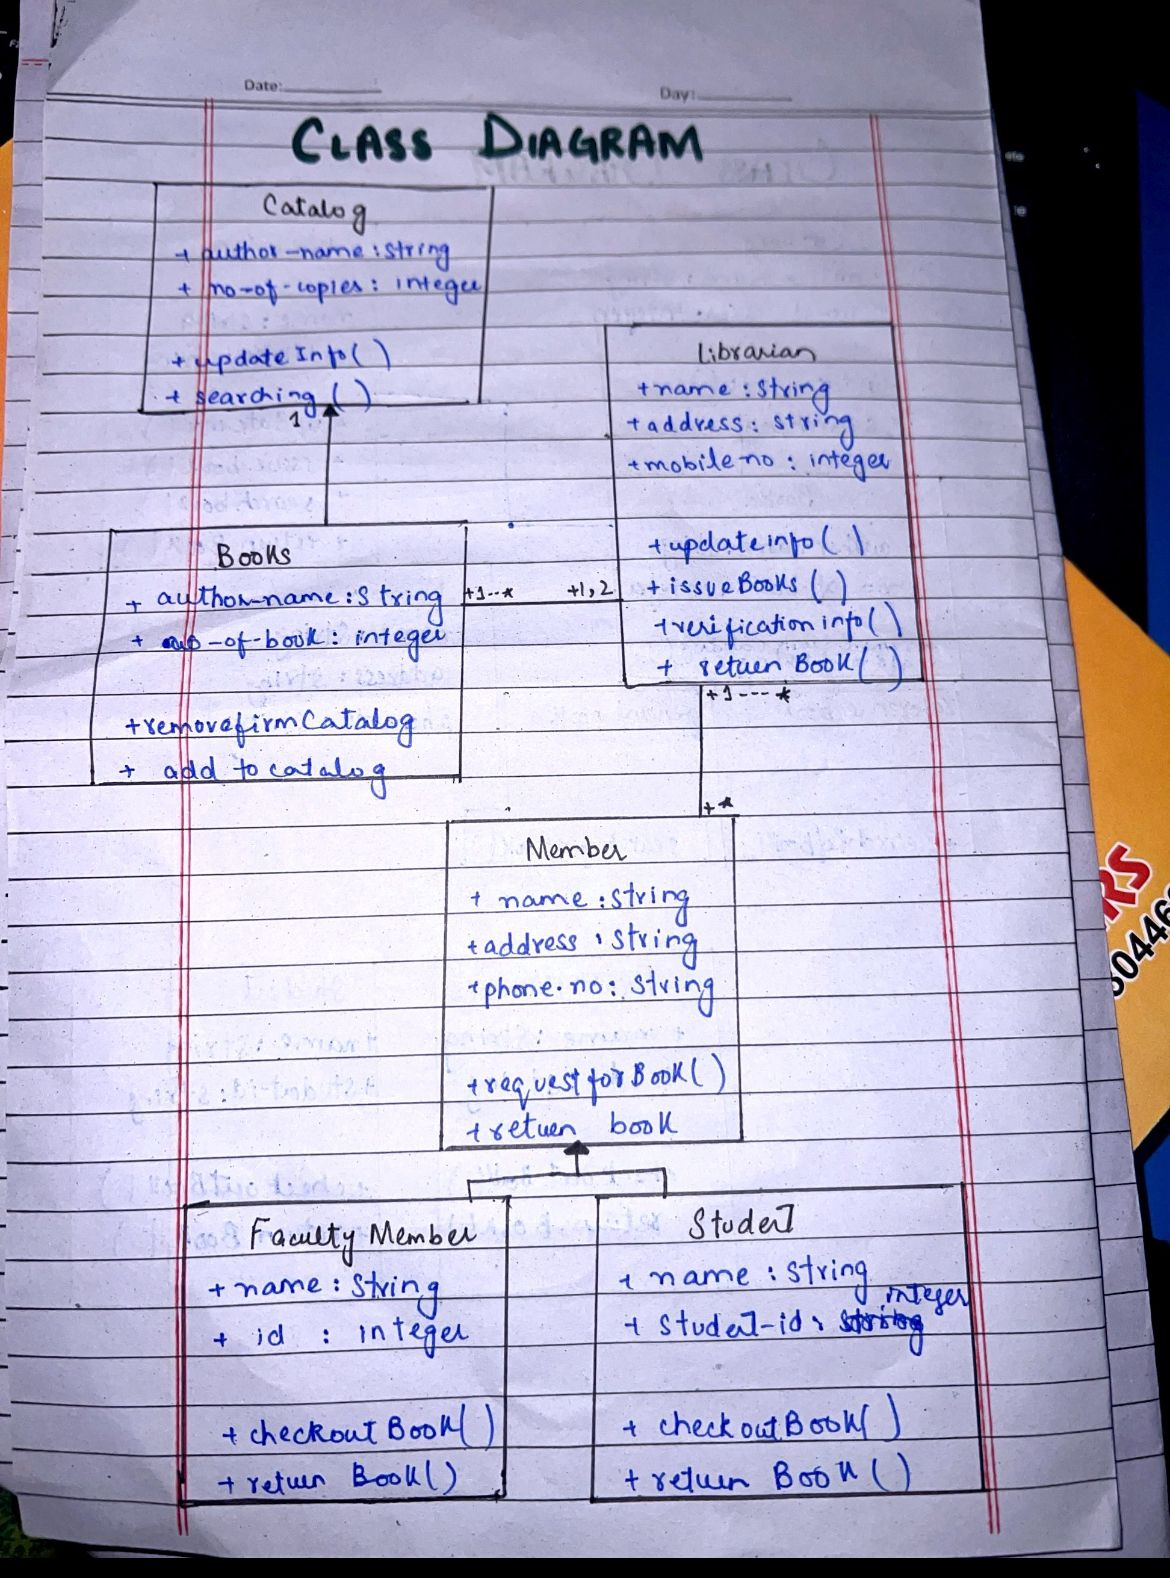 Date:
Day:
CLASS DIAGRAM
Catalog
+ author-name : string
+ no-of-copies : integer
+ update Info ( )
+ searching ( )
1
Librarian
+ name : string
+ address : string
+ mobile no : integer
+ updateinfo ( )
+ issueBooks ( )
+ verification info ( )
+ return Book ( )
Books
+ author-name : String
+ -of-book : integer
+ removefirmCatalog
+ add to catalog
+1--*
+1,2
+1---*
+*
Member
+ name : string
+ address : string
+ phone.no : string
+ requestforBook ( )
+ return book
Faculty Member
+ name : string
+ id : integer
+ checkout Book( )
+ return Book ( )
Student
+ name : string
integer
+ Student-id : string
+ checkoutBook( )
+ return Book ( )
RS